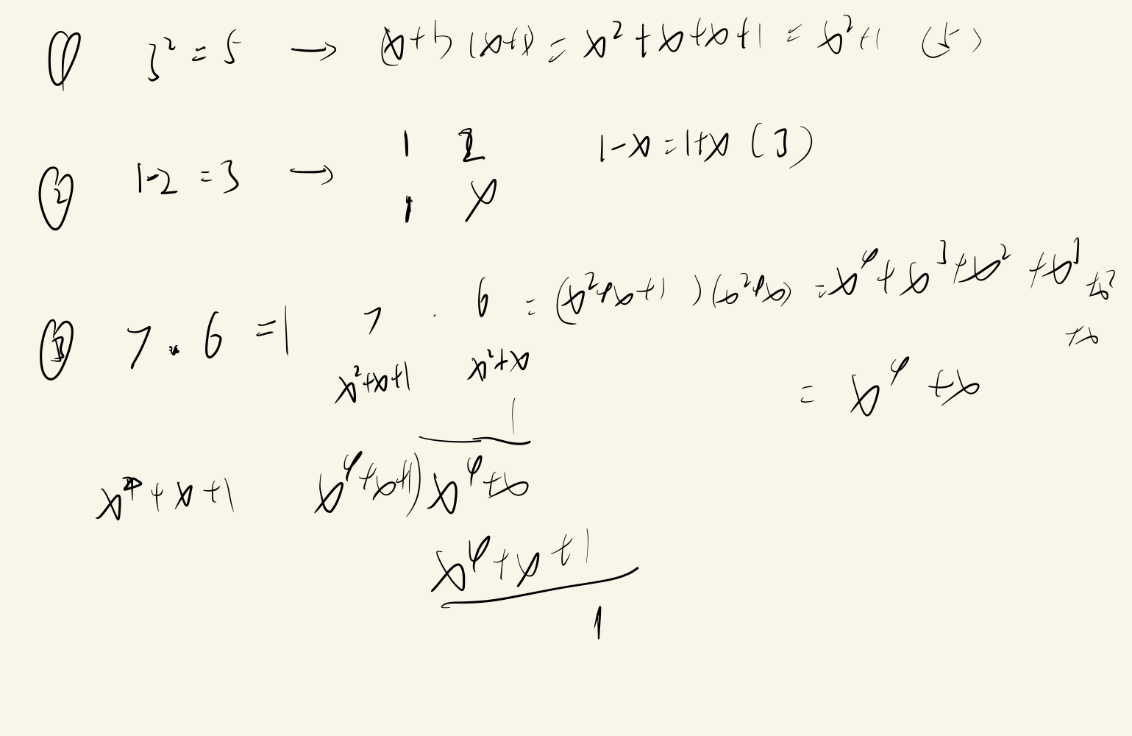 ① 3² = 5 → (x+1)(x+1) = x² + x + x + 1 = x²+1 (5)
② 1-2 = 3 → 1 2 1-x = 1+x (3)
1 x
③ 7 · 6 = 1 7 · 6 = (x²+x+1)(x²+x) = x⁴ + x³ + x² + x³ + x² + x
x²+x+1 x²+x
= x⁴ + x
1
x⁴ + x + 1 x⁴+x+1) x⁴+x
x⁴ + x + 1
1